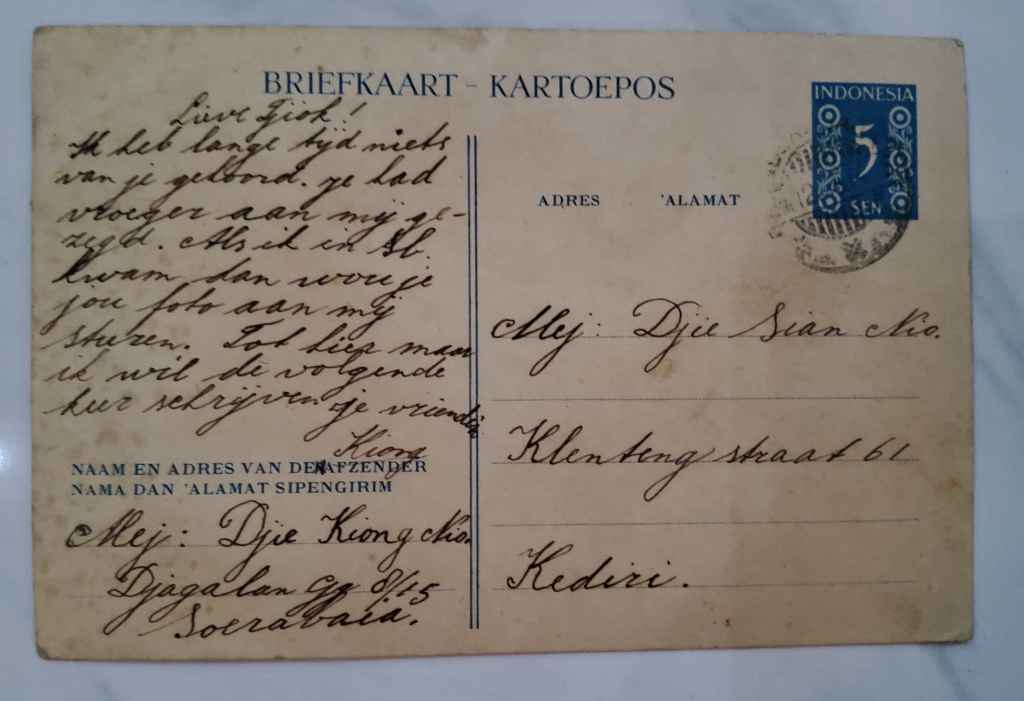 BRIEFKAART - KARTOEPOS
INDONESIA
5
SEN
Lieve Tjiok!
Ik heb lange tijd niets
van je gehoord. je had
vroeger aan mij ge-
zegd. Als ik in Sb.
kwam dan wou je
jou foto aan mij
sturen. Tot hier maar
ik wil de volgende
keer schrijven je vriendin
Kiong
NAAM EN ADRES VAN DEN AFZENDER
NAMA DAN 'ALAMAT SIPENGIRIM
Mej: Djie Kiong Nio.
Djagalan Gg 8/15
Soerabaia.
ADRES 'ALAMAT
Mej: Djie Sian Nio.
Klenteng straat 61
Kediri.